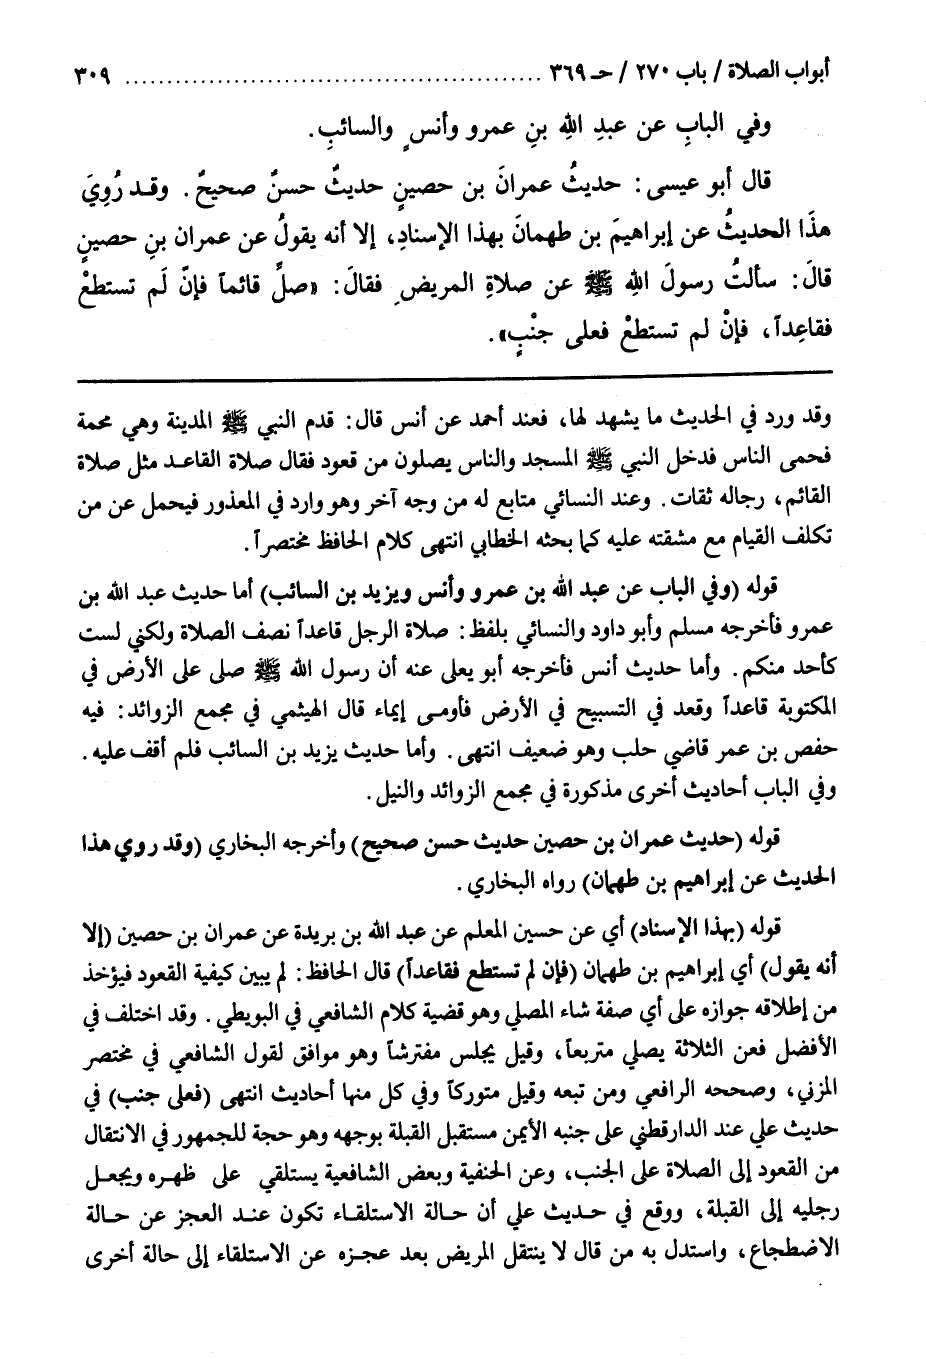 أبواب الصلاة / باب ٢٧٠ / حـ ٣٦٩ .................................................. ٣٠٩
وفي البابِ عن عبدِ اللهِ بنِ عمرو وأنسٍ والسائبِ.
قال أبو عيسى: حديثُ عمرانَ بن حصينٍ حديثٌ حسنٌ صحيحٌ. وقـد رُوِيَ
هذَا الحديثُ عن إبراهيمَ بن طهمانَ بهذا الإسنادِ، إلا أنه يقولُ عن عمران بنِ حصينٍ
قالَ: سألتُ رسولَ اللهِ ﷺ عن صلاةِ المريضِ فقالَ: «صلِّ قائماً فإنْ لَم تستطعْ
فقاعِداً، فإنْ لم تستطعْ فعلى جنْبٍ».
وقد ورد في الحديث ما يشهد لها، فعند أحمد عن أنس قال: قدم النبي ﷺ المدينة وهي محمة
فحمى الناس فدخل النبي ﷺ المسجد والناس يصلون من قعود فقال صلاة القاعـد مثل صلاة
القائم، رجاله ثقات. وعند النسائي متابع له من وجه آخر وهو وارد في المعذور فيحمل عن من
تكلف القيام مع مشقته عليه كما بحثه الخطابي انتهى كلام الحافظ مختصراً.
قوله (وفي الباب عن عبد الله بن عمرو وأنس ويزيد بن السائب) أما حديث عبد الله بن
عمرو فأخرجه مسلم وأبو داود والنسائي بلفظ: صلاة الرجل قاعداً نصف الصلاة ولكني لست
كأحد منكم. وأما حديث أنس فأخرجه أبو يعلى عنه أن رسول الله ﷺ صلى على الأرض في
المكتوبة قاعداً وقعد في التسبيح في الأرض فأومـى إيماء قال الهيثمي في مجمع الزوائد: فيه
حفص بن عمر قاضي حلب وهو ضعيف انتهى. وأما حديث يزيد بن السائب فلم أقف عليه.
وفي الباب أحاديث أخرى مذكورة في مجمع الزوائد والنيل.
قوله (حديث عمران بن حصين حديث حسن صحيح) وأخرجه البخاري (وقد روي هذا
الحديث عن إبراهيم بن طهمان) رواه البخاري.
قوله (بهذا الإسناد) أي عن حسين المعلم عن عبد الله بن بريدة عن عمران بن حصين (إلا
أنه يقول) أي إبراهيم بن طهمان (فإن لم تستطع فقاعداً) قال الحافظ: لم يبين كيفية القعود فيؤخذ
من إطلاقه جوازه على أي صفة شاء المصلي وهو قضية كلام الشافعي في البويطي. وقد اختلف في
الأفضل فعن الثلاثة يصلي متربعاً، وقيل يجلس مفترشاً وهو موافق لقول الشافعي في مختصر
المزني، وصححه الرافعي ومن تبعه وقيل متوركاً وفي كل منها أحاديث انتهى (فعلى جنب) في
حديث علي عند الدارقطني على جنبه الأيمن مستقبل القبلة بوجهه وهو حجة للجمهور في الانتقال
من القعود إلى الصلاة على الجنب، وعن الحنفية وبعض الشافعية يستلقي على ظهـره ويجعـل
رجليه إلى القبلة، ووقع في حـديث علي أن حـالة الاستلقـاء تكون عنـد العجز عن حـالة
الاضطجاع، واستدل به من قال لا ينتقل المريض بعد عجـزه عن الاستلقاء إلى حالة أخرى